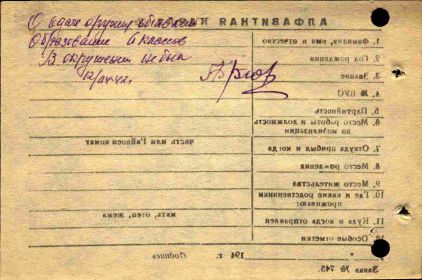 О сдаче оружия объявлен
Образование 4 классов
В окружении не был
АЛФАВИТНАЯ
1. Фамилия, имя и отчество
2. Год рождения
3. Звание
4. № ВУС
5. Партийность
6. Место работы и должность
до мобилизации
7. Откуда прибыл и когда
часть или Райвоенкомат
8. Место рождения
9. Место жительства
10. Где и какие родственники
проживают
мать, отец, жена,
11. Куда и когда отправлен
12. Особые отметки
194 г.
Подпись
Заказ № 745.